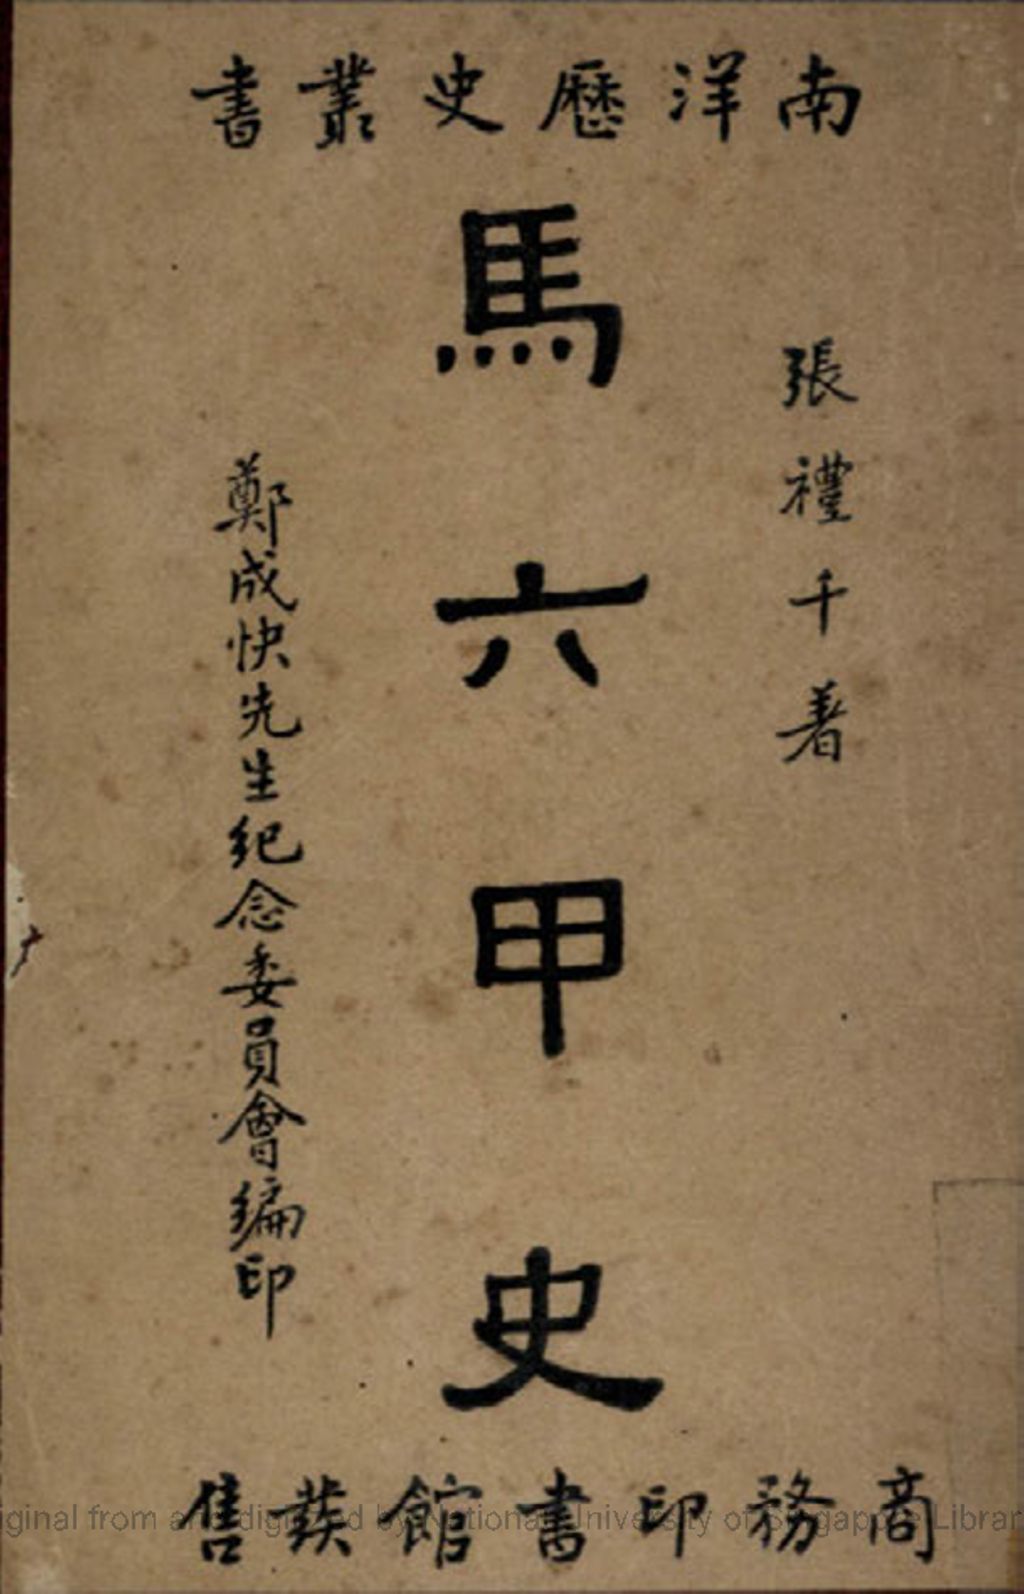 南洋歷史叢書
張禮千著
馬六甲史
鄭成快先生紀念委員會編印
商務印書館發售
iginal from and digitized by National University of Singapore Librar